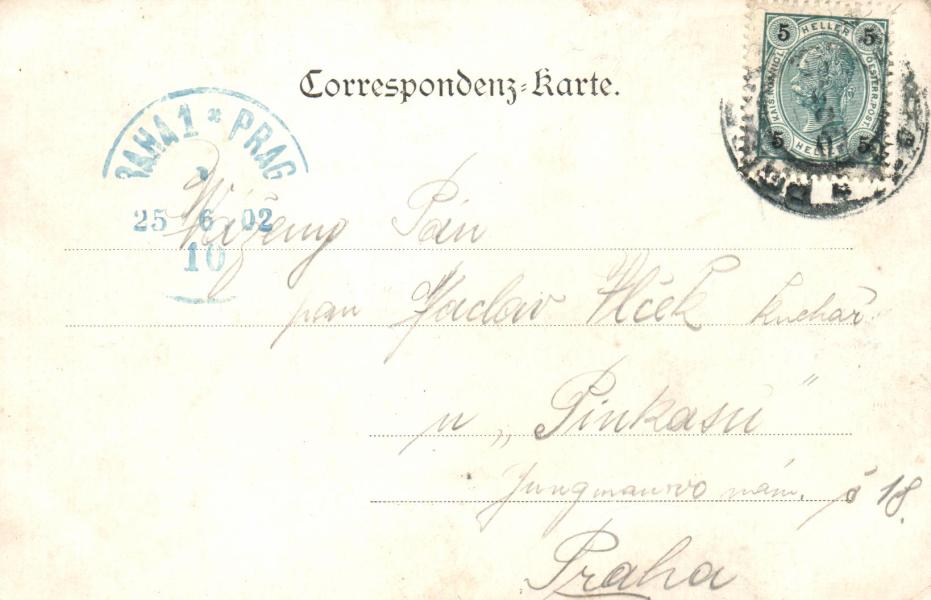 Correspondenz-Karte.
5 HELLER 5
KAIS. KÖNIGL. ÖSTERR. POST
5 HELLER 5
PRAHA 1 * PRAG
25 6 02
10
Vážený Pán
pan Vaclav Vlček kuchař
u „Pinkasů"
Jungmanovo nám. č 18.
Praha